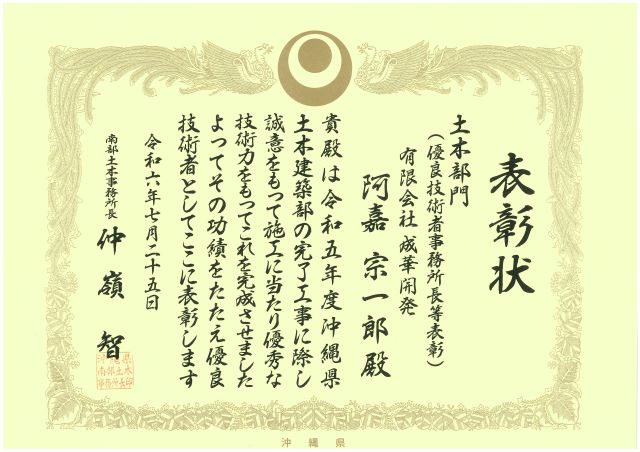 表彰状
土木部門
（優良技術者事務所長等表彰）
有限会社 成華開発
阿嘉 宗一郎 殿
貴殿は令和五年度沖縄県
土木建築部の完了工事に際し
誠意をもって施工に当たり優秀な
技術力をもってこれを完成させました
よってその功績をたたえ優良
技術者としてここに表彰します
令和六年七月二十五日
南部土木事務所長 仲嶺 智
沖縄県
南部土木
事務所長印
沖縄県